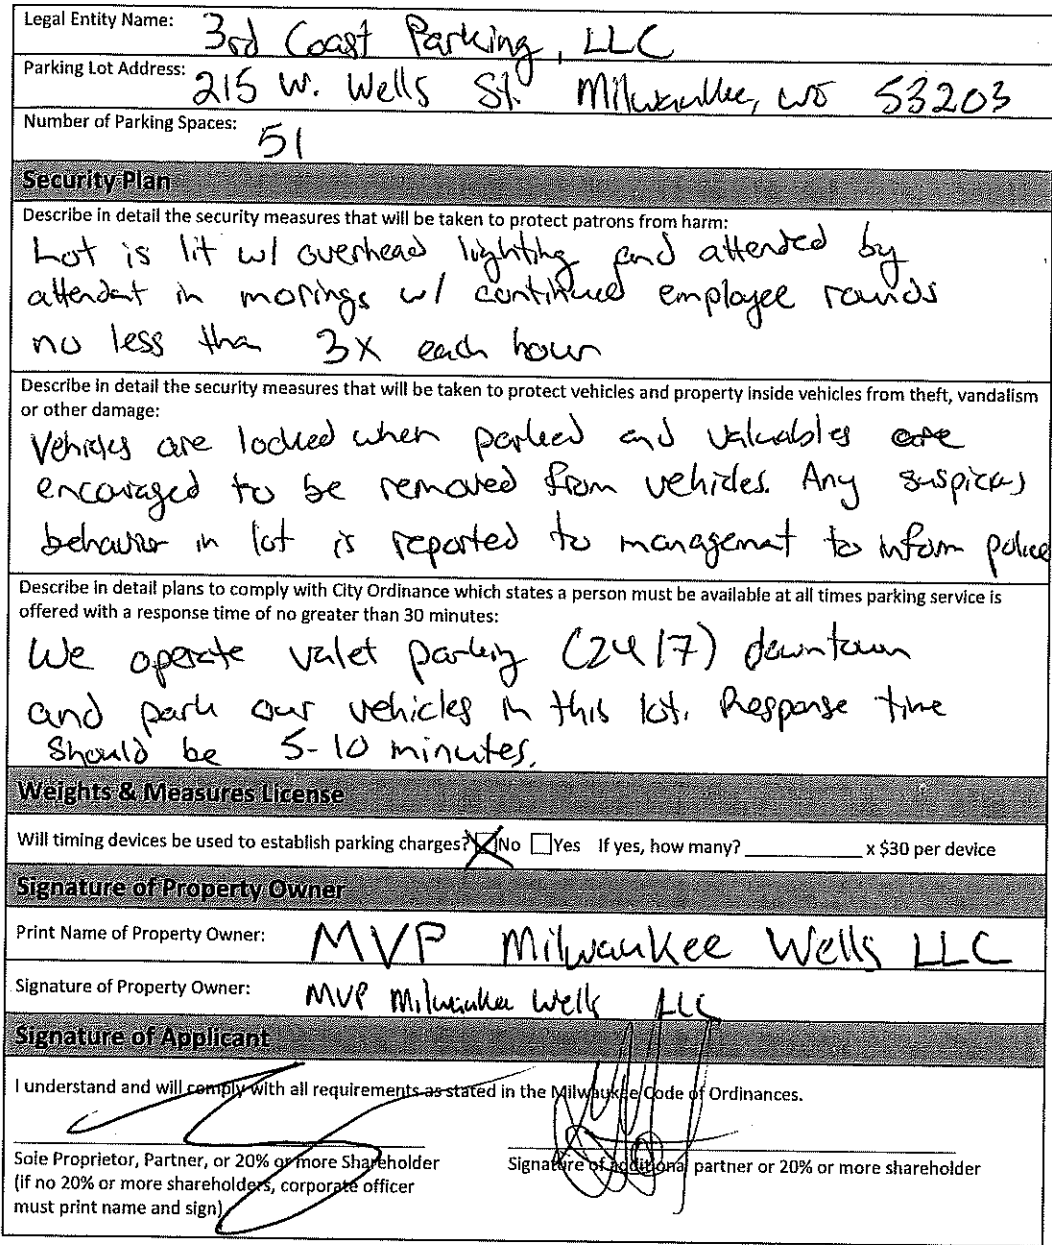 Legal Entity Name: 3rd Coast Parking, LLC
Parking Lot Address: 215 W. Wells St. Milwaukee, WI 53203
Number of Parking Spaces: 51
Security Plan
Describe in detail the security measures that will be taken to protect patrons from harm:
Lot is lit w/ overhead lighting and attended by
attendant in mornings w/ continued employee rounds
no less than 3x each hour
Describe in detail the security measures that will be taken to protect vehicles and property inside vehicles from theft, vandalism
or other damage:
Vehicles are locked when parked and valuables are
encouraged to be removed from vehicles. Any suspicious
behavior in lot is reported to management to inform police
Describe in detail plans to comply with City Ordinance which states a person must be available at all times parking service is
offered with a response time of no greater than 30 minutes:
We operate valet parking (24/7) downtown
and park our vehicles in this lot. Response time
should be 5-10 minutes.
Weights & Measures License
Will timing devices be used to establish parking charges? No Yes If yes, how many? x $30 per device
Signature of Property Owner
Print Name of Property Owner: MVP Milwaukee Wells LLC
Signature of Property Owner: MVP Milwaukee Wells LLC
Signature of Applicant
I understand and will comply with all requirements as stated in the Milwaukee Code of Ordinances.
Sole Proprietor, Partner, or 20% or more Shareholder
(if no 20% or more shareholders, corporate officer
must print name and sign)
Signature of additional partner or 20% or more shareholder